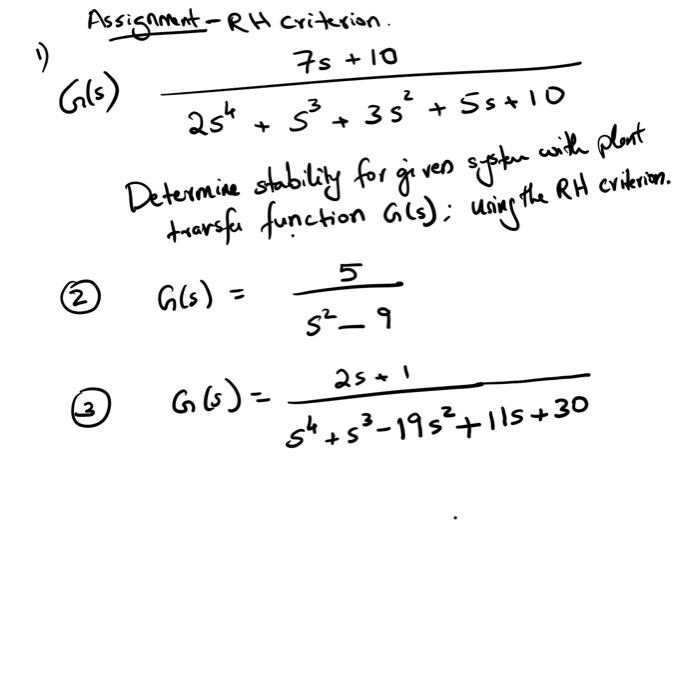 Assignment - RH criterion.
1)
G(s) (7s + 10) / (2s⁴ + s³ + 3s² + 5s + 10)
Determine stability for given system with plant
transfer function G(s); using the RH criterion.
② G(s) = 5 / (s² - 9)
③ G(s) = (2s + 1) / (s⁴ + s³ - 19s² + 11s + 30)